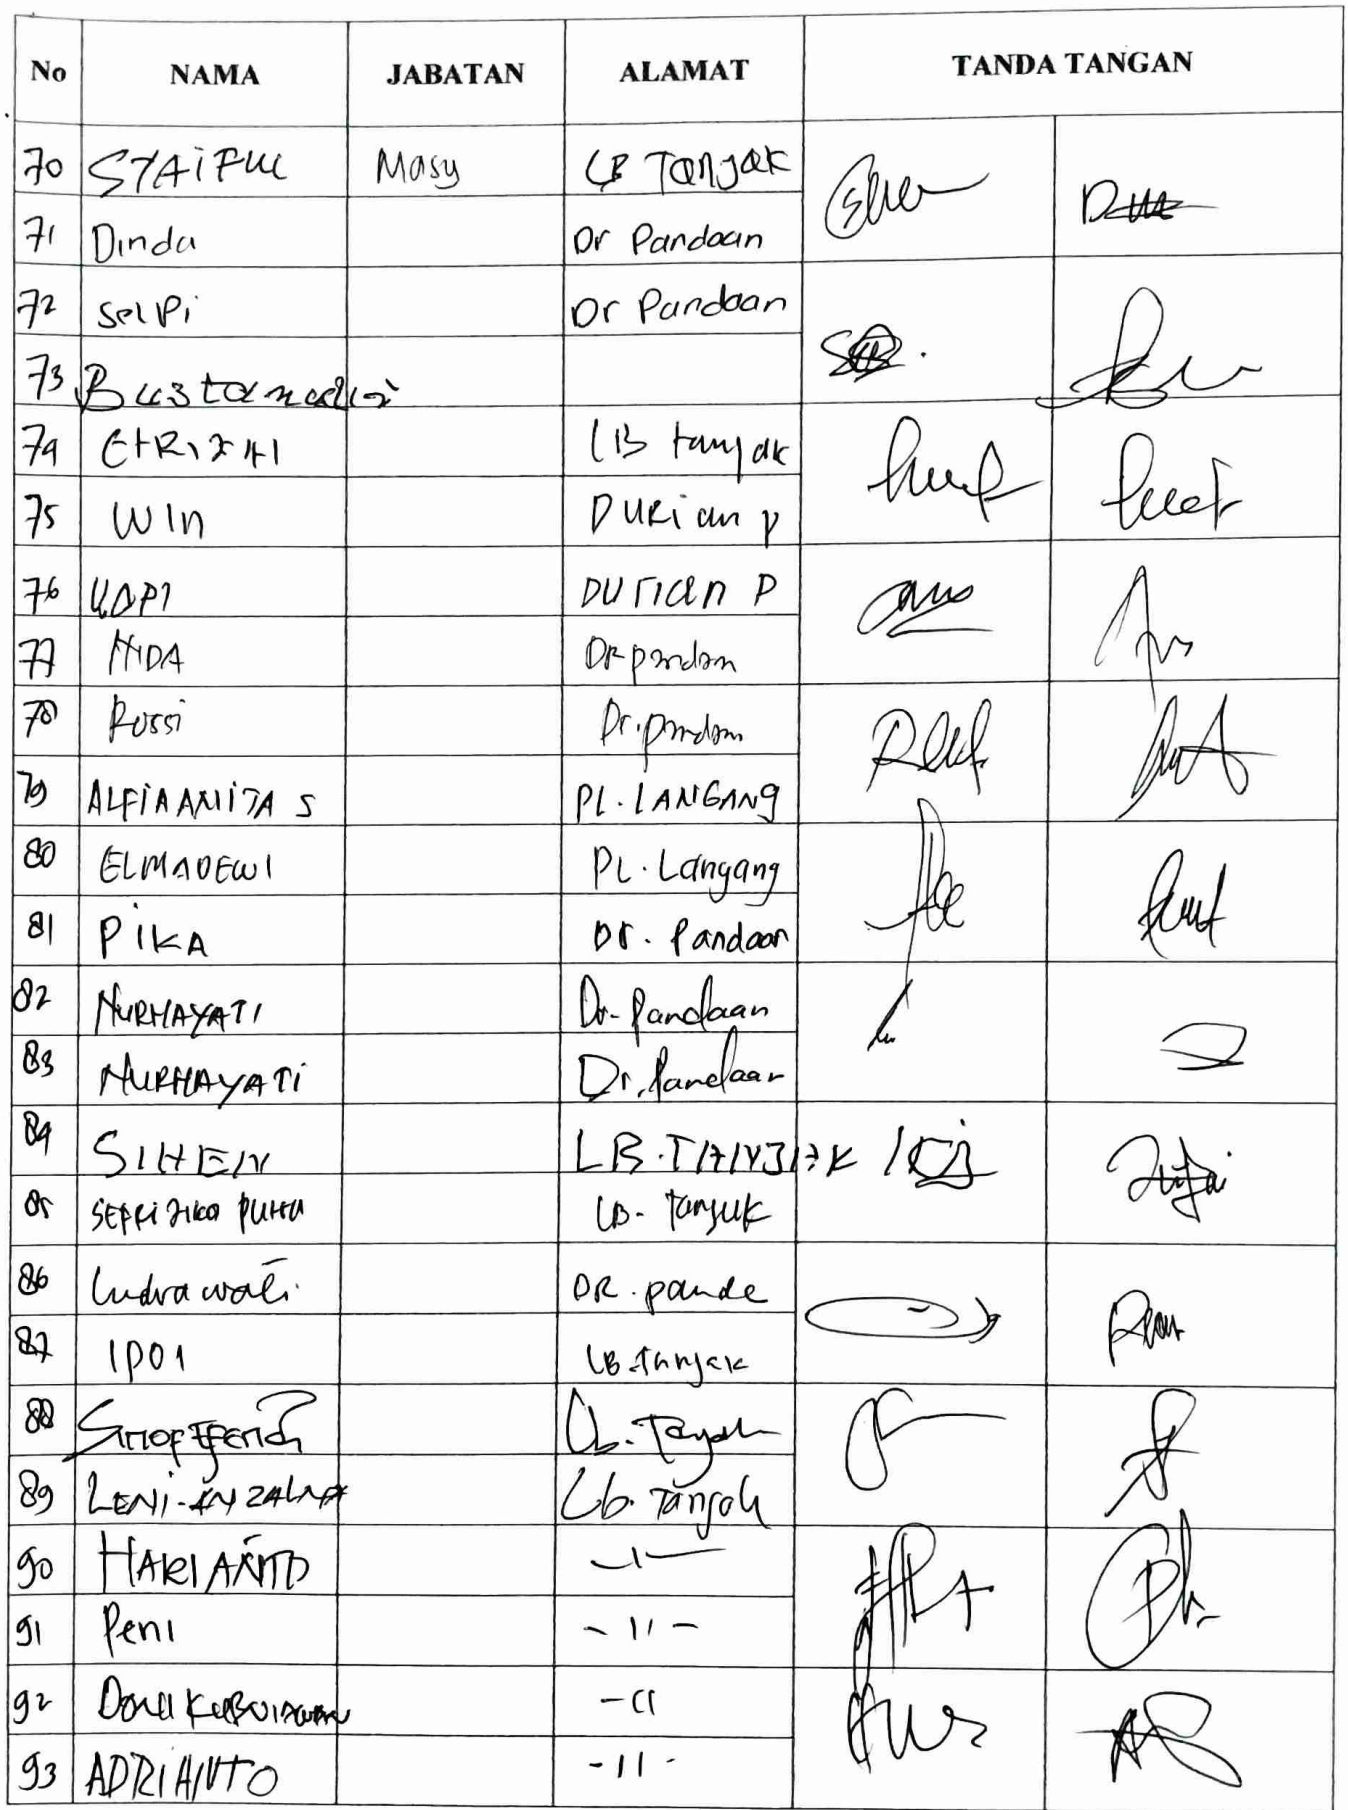 No NAMA JABATAN ALAMAT TANDA TANGAN
70 SYAiFUL Masy LB Tanjak
71 Dinda Dr Pandaan
72 selpi Dr Pandaan
73 Bustamadi
74 LB tanjak
75 WIn DURian p
76 DUrian P
77 HIDA Dr pandan
78 Rossi Dr. pandan
79 ALFiA ANiTA S PL. LANGANG
80 ELMADEWI PL. Langang
81 PiKA Dr. Pandaan
82 NURHAYATI Dr. Pandaan
83 NURHAYATi Dr. Pandaan
84 SIHEN LB. TANJAK
85 LB. Tanjuk
86 Indrawati DR. pande
87 IPO1 LB. tanjak
88 Lb. Tanjak
89 LENi Lb. Tanjak
90 HARIANTO -"-
91 Peni - " -
92 - "
93 ADRIANTO - " -